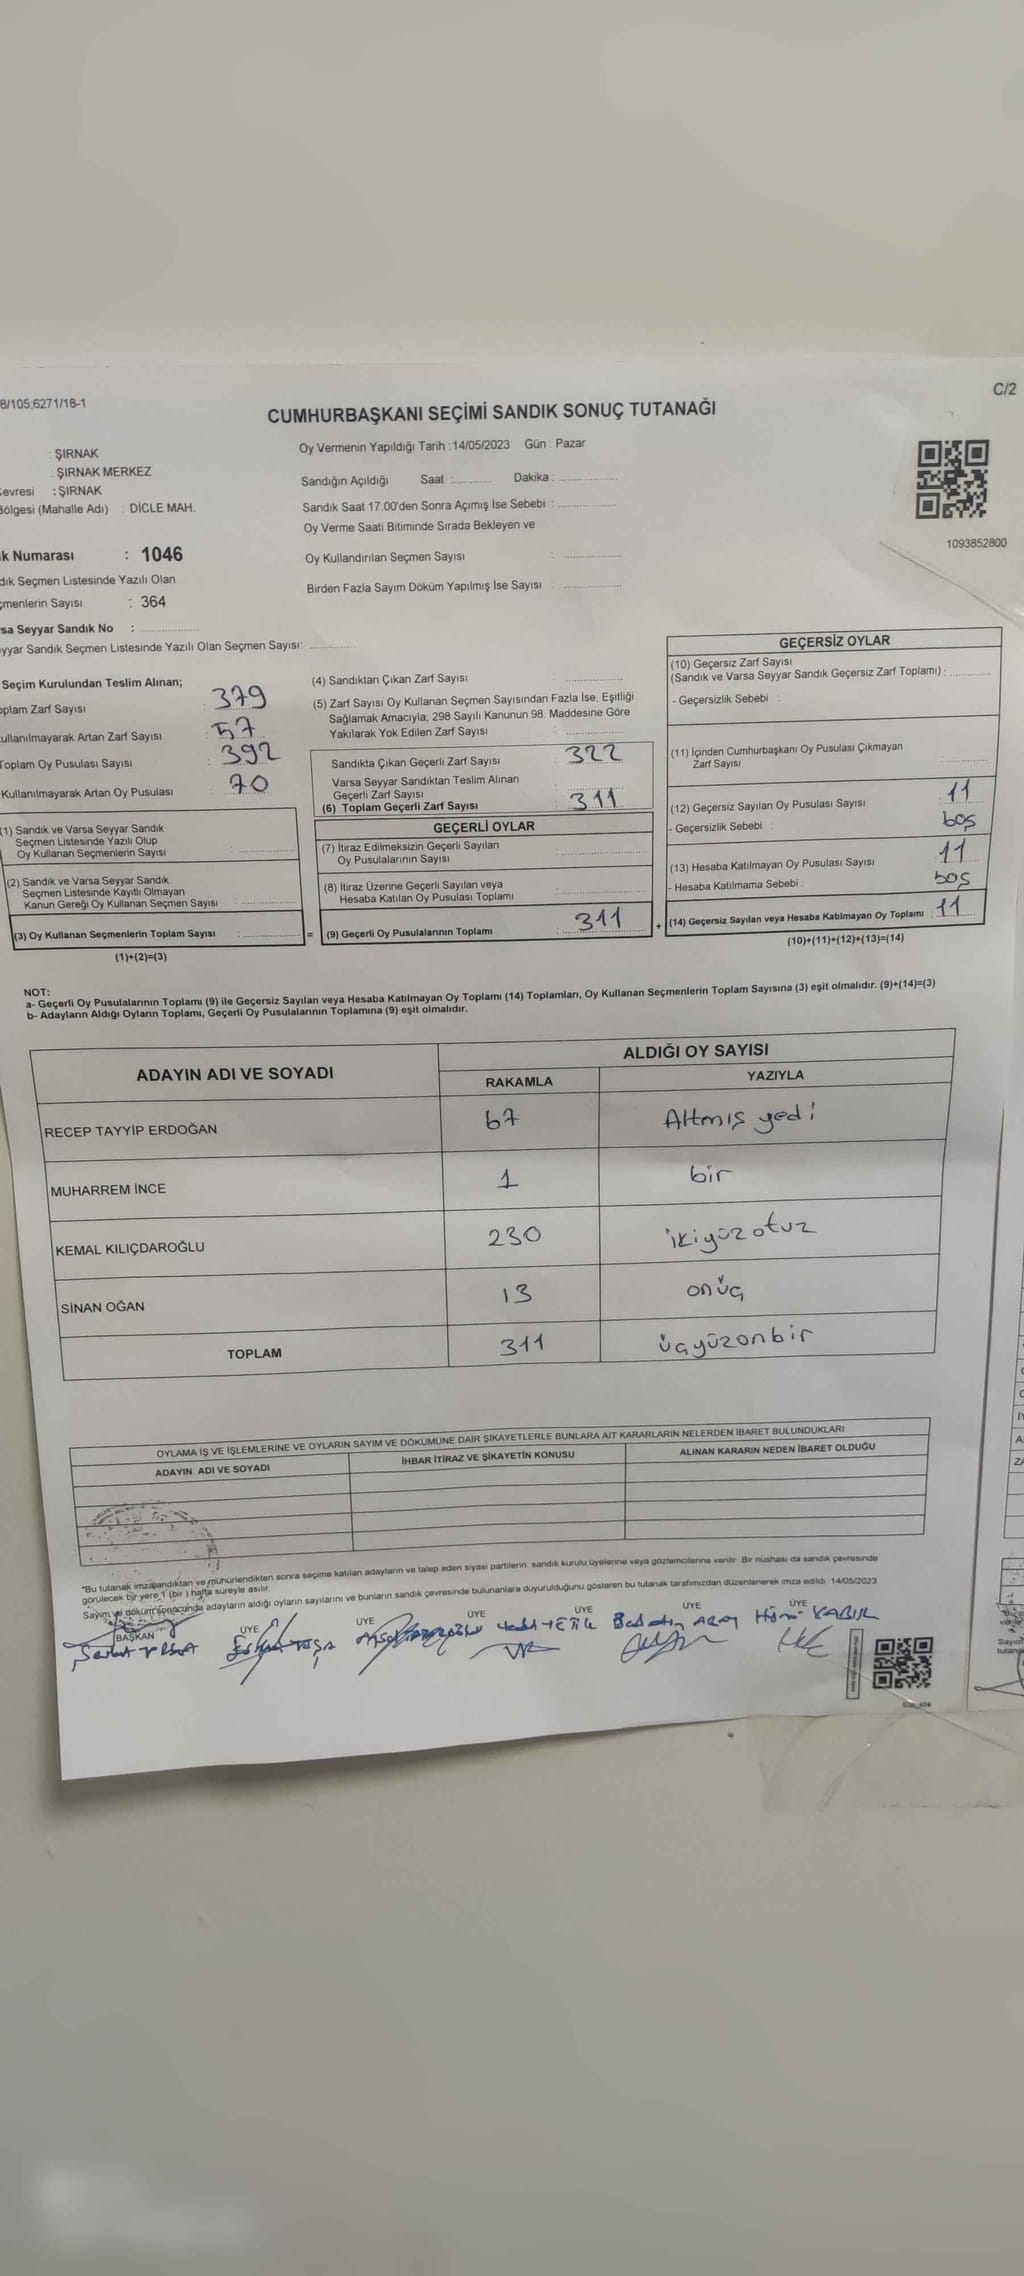 8/105;6271/18-1
C/2
CUMHURBAŞKANI SEÇİMİ SANDIK SONUÇ TUTANAĞI
: ŞIRNAK
: ŞIRNAK MERKEZ
: ŞIRNAK
Bölgesi (Mahalle Adı) : DİCLE MAH.
Numarası : 1046
Seçmen Listesinde Yazılı Olan
Sayısı : 364
Seyyar Sandık No : ....................
Seyyar Sandık Seçmen Listesinde Yazılı Olan Seçmen Sayısı: ...............
Oy Vermenin Yapıldığı Tarih : 14/05/2023 Gün : Pazar
Sandığın Açıldığı Saat :............ Dakika :..................
Sandık Saat 17.00'den Sonra Açımış İse Sebebi :..................
Oy Verme Saati Bitiminde Sırada Bekleyen ve
Oy Kullandırılan Seçmen Sayısı : ..................
Birden Fazla Sayım Döküm Yapılmış İse Sayısı : ..................
1093852800
Seçim Kurulundan Teslim Alınan;
Zarf Sayısı : 379
Kullanılmayarak Artan Zarf Sayısı : 57
Toplam Oy Pusulası Sayısı : 392
Kullanılmayarak Artan Oy Pusulası : 70
(1) Sandık ve Varsa Seyyar Sandık
Seçmen Listesinde Yazılı Olup
Oy Kullanan Seçmenlerin Sayısı : ..................
(2) Sandık ve Varsa Seyyar Sandık
Seçmen Listesinde Kayıtlı Olmayan
Kanun Gereği Oy Kullanan Seçmen Sayısı : ..................
(3) Oy Kullanan Seçmenlerin Toplam Sayısı : .................. =
(1)+(2)=(3)
(4) Sandıktan Çıkan Zarf Sayısı : ..................
(5) Zarf Sayısı Oy Kullanan Seçmen Sayısından Fazla İse, Eşitliği
Sağlamak Amacıyla, 298 Sayılı Kanunun 98. Maddesine Göre
Yakılarak Yok Edilen Zarf Sayısı : ..................
Sandıkta Çıkan Geçerli Zarf Sayısı : 322
Varsa Seyyar Sandıktan Teslim Alınan
Geçerli Zarf Sayısı
(6) Toplam Geçerli Zarf Sayısı : 311
GEÇERLİ OYLAR
(7) İtiraz Edilmeksizin Geçerli Sayılan
Oy Pusulalarının Sayısı : ..................
(8) İtiraz Üzerine Geçerli Sayılan veya
Hesaba Katılan Oy Pusulası Toplamı : ..................
(9) Geçerli Oy Pusulalarının Toplamı : 311 +
GEÇERSİZ OYLAR
(10) Geçersiz Zarf Sayısı
(Sandık ve Varsa Seyyar Sandık Geçersiz Zarf Toplamı) : ............
- Geçersizlik Sebebi :
(11) İçinden Cumhurbaşkanı Oy Pusulası Çıkmayan
Zarf Sayısı : ............
(12) Geçersiz Sayılan Oy Pusulası Sayısı : 11
- Geçersizlik Sebebi : boş
(13) Hesaba Katılmayan Oy Pusulası Sayısı : 11
- Hesaba Katılmama Sebebi : boş
(14) Geçersiz Sayılan veya Hesaba Katılmayan Oy Toplamı : 11
(10)+(11)+(12)+(13)=(14)
NOT:
a- Geçerli Oy Pusulalarının Toplamı (9) ile Geçersiz Sayılan veya Hesaba Katılmayan Oy Toplamı (14) Toplamları, Oy Kullanan Seçmenlerin Toplam Sayısına (3) eşit olmalıdır. (9)+(14)=(3)
b- Adayların Aldığı Oyların Toplamı, Geçerli Oy Pusulalarının Toplamına (9) eşit olmalıdır.
ADAYIN ADI VE SOYADI ALDIĞI OY SAYISI
RAKAMLA YAZIYLA
RECEP TAYYİP ERDOĞAN 67 Altmış yedi
MUHARREM İNCE 1 bir
KEMAL KILIÇDAROĞLU 230 ikiyüz otuz
SİNAN OĞAN 13 onüç
TOPLAM 311 üçyüzonbir
OYLAMA İŞ VE İŞLEMLERİNE VE OYLARIN SAYIM VE DÖKÜMÜNE DAİR ŞİKAYETLERLE BUNLARA AİT KARARLARIN NELERDEN İBARET BULUNDUKLARI
ADAYIN ADI VE SOYADI İHBAR İTİRAZ VE ŞİKAYETİN KONUSU ALINAN KARARIN NEDEN İBARET OLDUĞU
"Bu tutanak imzalandıktan ve mühürlendikten sonra seçime katılan adayların ve talep eden siyasi partilerin sandık kurulu üyelerine veya gözlemcilerine verilir. Bir nüshası da sandık çevresinde
görülecek bir yere 1 (bir) hafta süreyle asılır.
Sayım ve döküm sonucunda adayların aldığı oyların sayılarını ve bunların sandık çevresinde bulunanlara duyurulduğunu gösteren bu tutanak tarafımızdan düzenlenerek imza edildi. 14/05/2023
BAŞKAN ÜYE ÜYE ÜYE ÜYE ÜYE ÜYE